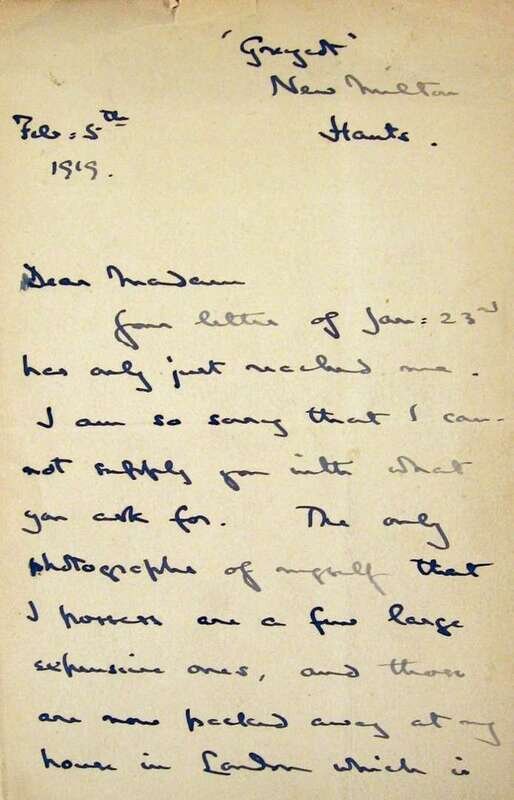 New Milton
Hants.
Feb: 5th
1919.
Dear Madam
Your letter of Jan: 23rd
has only just reached me.
I am so sorry that I can-
not supply you with what
you ask for. The only
photographs of myself that
I possess are a few large
expensive ones, and those
are now packed away at my
house in London which is